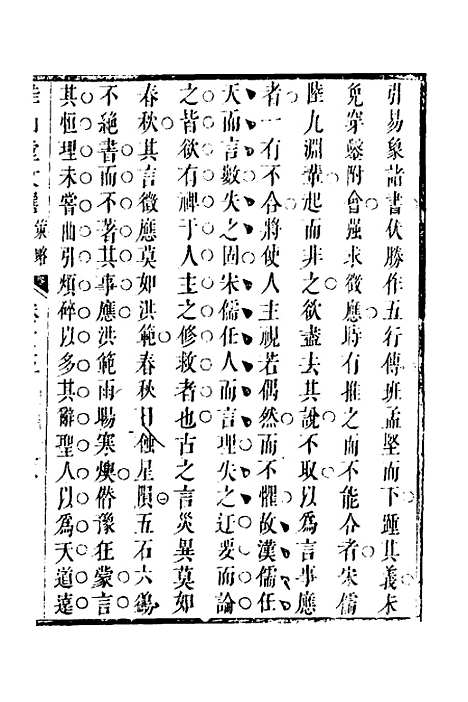 引易象諸書伏勝作五行傳班孟堅而下踵其義未
免穿鑿附會强求徵應時有推之而不能合者宋儒
陸九淵輩起而非之欲盡去其說不取以爲言事應
者一有不合將使人主視若偶然而不懼故漢儒任
天而言數失之固宋儒任人而言理失之迂要而論
之皆欲有裨于人主之修救者也古之言災異莫如
春秋其言徵應莫如洪範春秋日蝕星隕五石六鷁
不絕書而不著其事應洪範雨暘寒燠僭豫狂蒙言
其恒理未嘗曲引煩碎以多其辭聖人以爲天道遠
堂文 策略